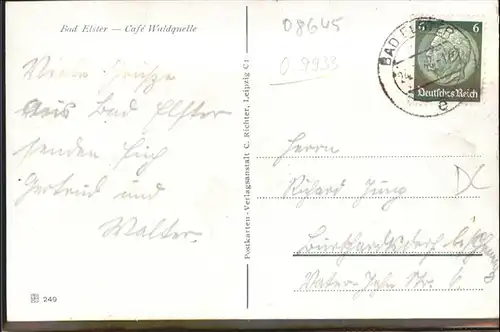 Bad Elster — Café Waldquelle
Viele Grüße
aus Bad Elster
senden Euch
Gertrud und
Walter.
249
Postkarten-Verlagsanstalt C. Richter, Leipzig C1
08645
0.9933
BAD ELSTER
6
Deutsches Reich
Herrn
Richard Jung
Burkhardtsdorf b/Chemnitz
Vater-Jahn Str. 6